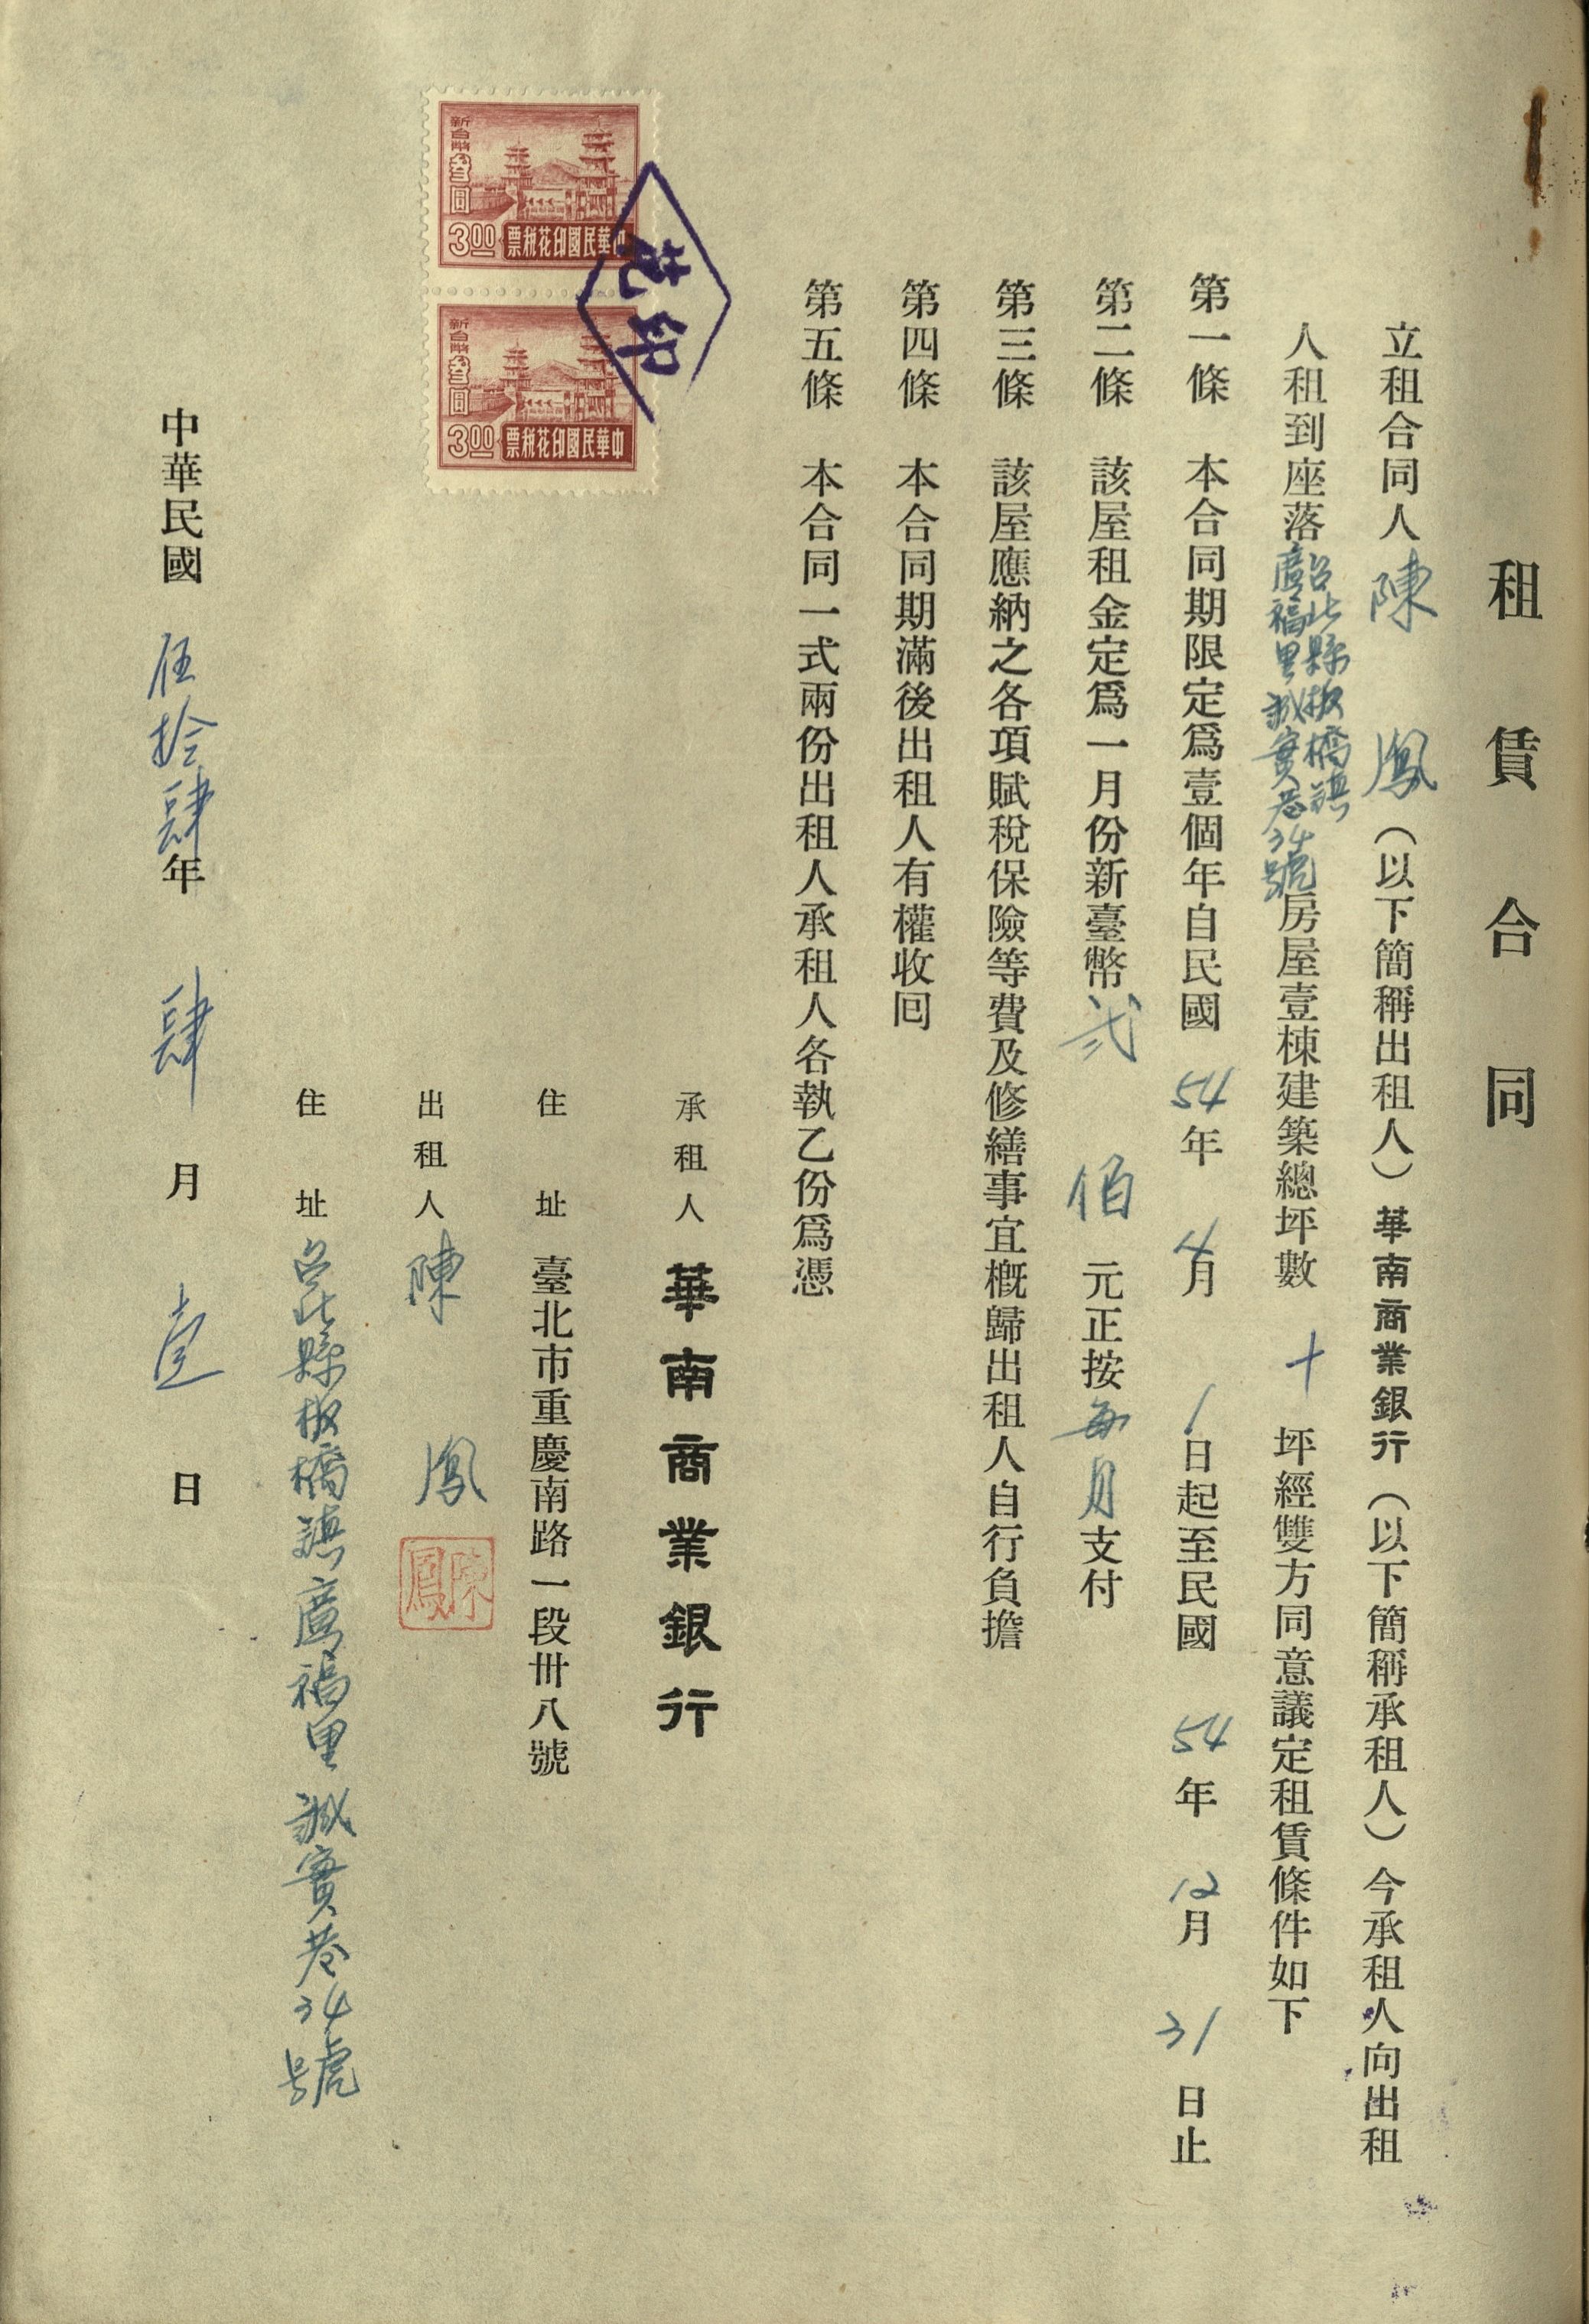 租賃合同
立租合同人陳鳳（以下簡稱出租人）華南商業銀行（以下簡稱承租人）今承租人向出租
人租到座落台北縣板橋鎮廣福里誠實巷34號房屋壹棟建築總坪數十坪經雙方同意議定租賃條件如下
第一條 本合同期限定爲壹個年自民國54年4月1日起至民國54年12月31日止
第二條 該屋租金定爲一月份新臺幣弍佰元正按每月支付
第三條 該屋應納之各項賦稅保險等費及修繕事宜概歸出租人自行負擔
第四條 本合同期滿後出租人有權收回
第五條 本合同一式兩份出租人承租人各執乙份爲憑
承租人 華南商業銀行
住址 臺北市重慶南路一段卅八號
出租人 陳鳳
陳鳳
住址 台北縣板橋鎮廣福里誠實巷34號
中華民國伍拾肆年肆月壹日
新台幣叁圓
3.00
中華民國印花稅票
新台幣叁圓
3.00
中華民國印花稅票
印花